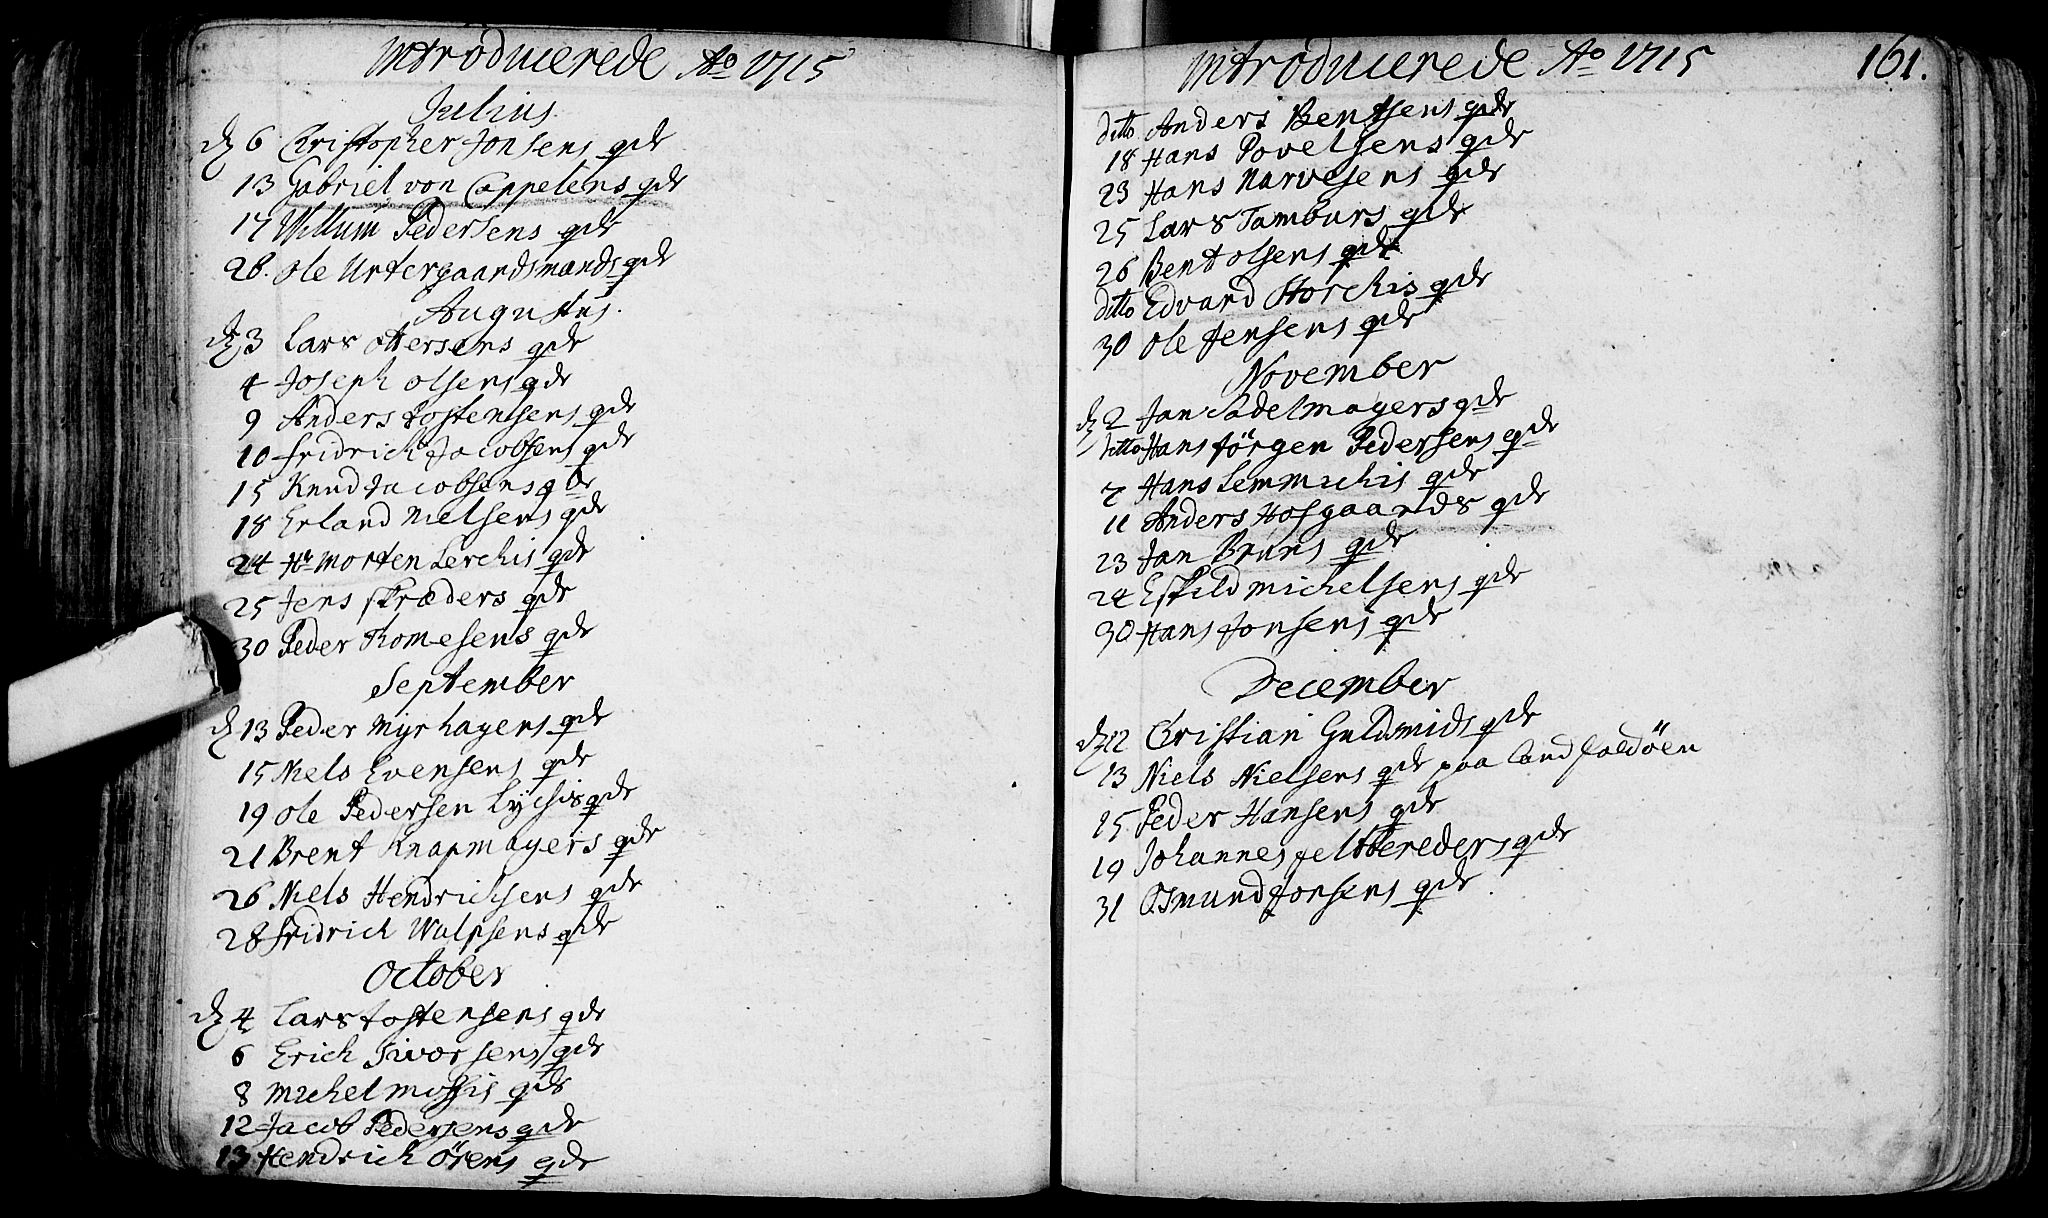 Introducerede Ao 1715
Julius
dZ 6 Christopher Jonsens qde
13 Gabriel von Cappelens qde
17 Willum Pedersens qde
28. Ole Urtergaardsmands qde
Augustus.
dZ 3 Lars Ottersens qde
4 Joseph Olsens qde
9 Anders tostensens qde
10 Fridrich Jacobsens qde
15 Knud Jacobsens qde
18 Erland Nielsens qde
24 Hr Morten Lerchis qde
25 Jens skræders qde
30 Peder Thomesens qde
September
dZ 13 Peder Myrhagens qde
15 Niels Evensens qde
19 Ole Pedersen Lÿchis qde
21 Brent Knapmagers qde
26 Niels Hendrichsens qde
28 Fridrich Wulfsens qde
October
dZ 4 Lars tostensens qde
6 Erich Sivorsens qde
8 Michel Mossis qde
12 Jacob Pedersens qde
13 Hendrich Örens qde
Introducerede Ao 1715
161.
ditto Anders Bentsens qde
18 Hans Povelsens qde
23 Hans Narvesens qde
25 Lars Tamburs qde
26 Bent Olsens qde
ditto Edvard Storchis qde
30 Ole Jensens qde
November
dZ 2 Jan Sadelmagers qde
ditto Hans Jörgen Pedersens qde
7 Hans Lemmichis qde
11 Anders Hofgaards qde
23 Jan Bruns qde
24 Eskild Michelsens qde
30 Hans Jonsens qde
December
dZ 12 Christian Guldsmids qde
13 Niels Nielsens qde paa Landfaldöen
15 Peder Hansens qde
19 Johannes feltbereders qde
31 Osmund Jonsens qde